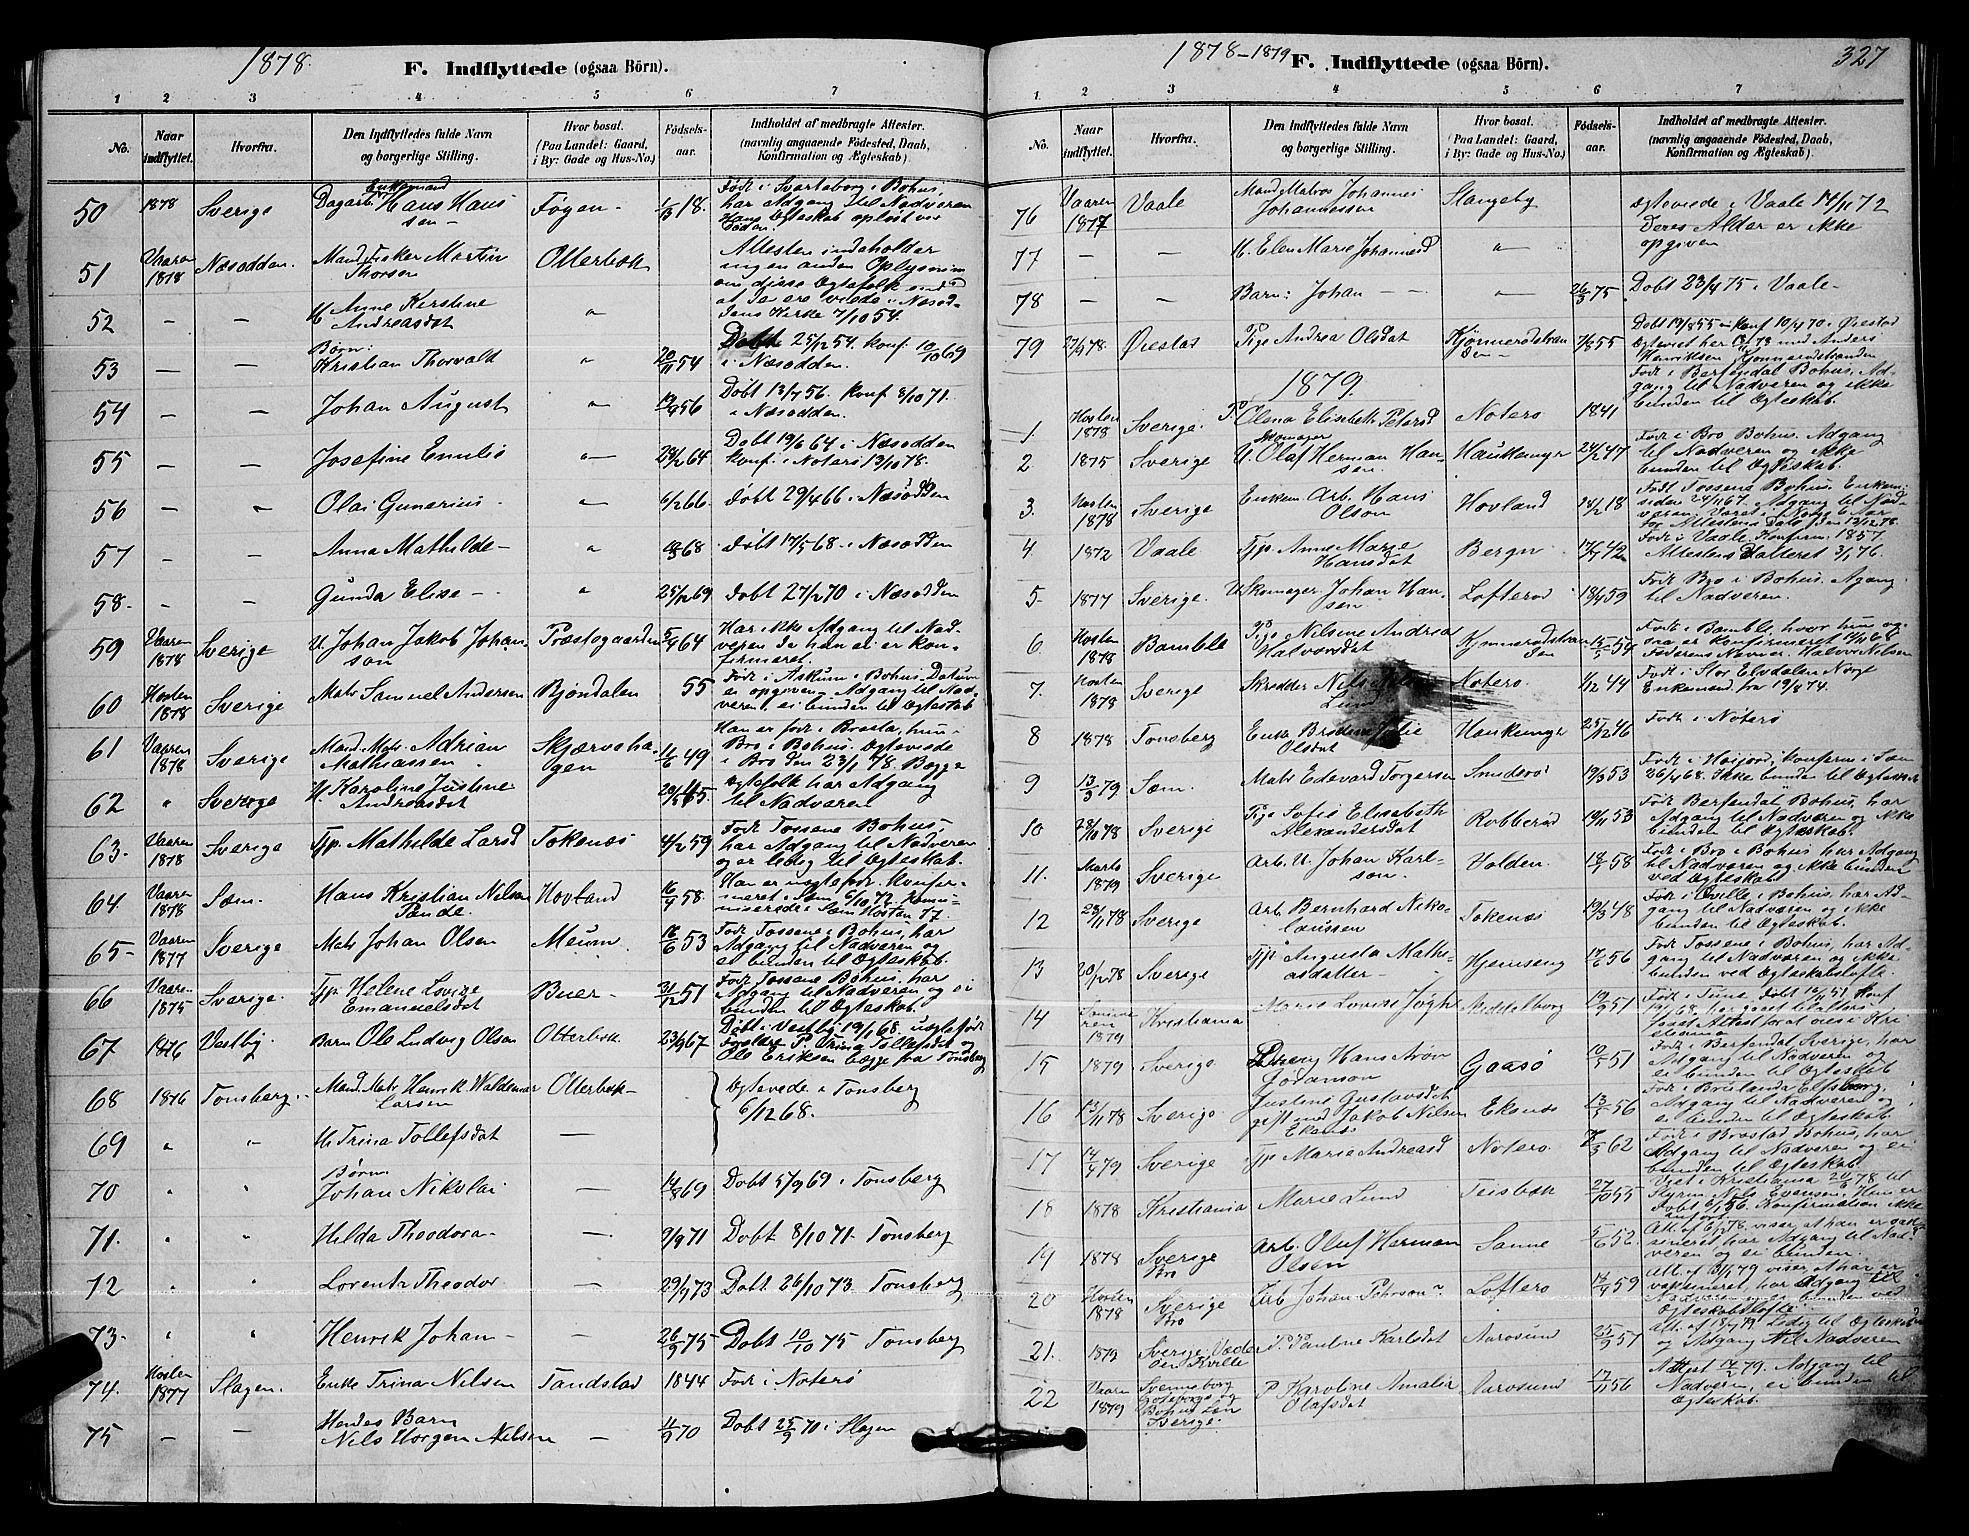 1878.
F. Indflyttede (ogsaa Börn).
1 2 3 4 5 6 7
No. Naar indflyttet. Hvorfra. Den Indflyttedes fulde Navn og borgerlige Stilling. Hvor bosat. (Paa Landet: Gaard, i By: Gade og Hus-No.) Födsels-aar. Indholdet af medbragte Attester. (navnlig angaaende Födested, Daab, Konfirmation og Ægteskab).
50 1878 Sverige Dagarb. Enkemand Hans Hansen Föyen 18. Född i Svarteborg i Bohus, har Adgang til Nadveren Hans Ægteskab opløst ved Døden.
51 Vaaren 1878 Næsodden. Mand Fisker Martin Thorsen Otterbæk Attesten indeholder ingen anden Oplysning om disse Ægtefolk end at de ere viede i Næsoddens Kirke 7/10 54.
52 – – H. Anne Kirstine Andreasdat "
53 – – Børn: Kristian Thorvald " 20/11 54 Døbt 25/12 54. Konf. 10/10 69 i Næsodden.
54 – – Johan August " 56 Døbt 13/7 56. Konf 8/10 71. i Næsodden.
55 – – Josefine Emilie " 29/2 64 Døbt 19/6 64 i Næsodden Konf. i Nøterø 13/10 78.
56 – – Olai Gunerius " 6/2 66 Døbt 29/4 66 i Næsodden
57 – – Anna Mathilde " 68 Døbt 17/5 68 i Næsodden
58. – – Gunda Elise " 25/12 69 Døbt 27/2 70 i Næsodden
59 Vaaren 1878 Sverige U. Johan Jakob Johansson Præstegaarden 5/9 64 Har ikke Adgang til Nadveren da han ei er konfirmeret.
60 Hösten 1878 Sverige Matr Samuel Andersen Bjøndalen 55 Født i Askum i Bohus Datum ei opgiven. Adgang til Nadveren, ei bunden til Ægteskab
61 Vaaren 1878 Sverige Mand Matr. Adrian Mathiassen Skjærvehagen 49 Han er født i Brasta, hun i Bro i Bohus. Ægteviede i Bro den 23/1 78. Begge
62 " Sverige H. Karoline Justine Andreasdat 55. Ægtefolk har Adgang til Nadveren
63. Vaaren 1878 Sverige Tjp. Mathilde Larsd Tokenæs 4/2 59 Født Tossene Bohus, har Adgang til Nadveren og er ledig til Ægteskab.
64 Vaaren 1878 Sem. Hans Kristian Nilsen Pande. Hovland 16/9 58. Han er uægtefød. Konfirmeret i Sem 6/10 72. kommuniserede i Sem Høsten 77.
65 Vaaren 1877 Sverige Matr Johan Olsen Meum 16/6 53 Født Tossene i Bohus, har Adgang til Nadveren og ei bunden til Ægteskab.
66 Vaaren 1875 Sverige. Tjp. Helene Lovise Emanuelsdat Buer 31/12 51 Født Tossene Bohus, har Adgang til Nadveren og ei bunden til Ægteskab.
67 1876 Vestby. Barn Ole Ludvig Olsen Otterbæk 23/9 67 Døbt i Vestby 19/1 68. uægteføt Foreldre P. Trina Tollefsdat og Ole Eriksen begge fra Tønsberg
68 1876 Tønsberg. Mand. Matr Henrik Waldemar Larsen Otterbæk Ægteviede i Tønsberg 6/12 68.
69 " " H. Trina Tollefsdat –
70 " " Børn Johan Nikolai – 14/8 69 Døbt 5/9 69 i Tønsberg
71. " " Hilda Theodora – 9/9 71 Døbt 8/10 71 Tønsberg
72 " " Lorentz Theodor – 29/9 73 Døbt 26/10 73. Tønsberg
73 " " Henrik Johan – 26/9 75 Døbt 10/10 75 Tønsberg
74. Høsten 1877 Slagen. Enke Trina Nilsen Tandstad 1844 Født i Nøterø
75 – – Hendes Barn Nils Horgen Nilsen – 70 Døbt 25/9 70 i Slagen
1878–1879
F. Indflyttede (ogsaa Börn).
327
1. 2 3 4 5 6 7
No. Naar indflyttet. Hvorfra. Den Indflyttedes fulde Navn og borgerlige Stilling. Hvor bosat. (Paa Landet: Gaard, i By: Gade og Hus-No.) Födsels-aar. Indholdet af medbragte Attester. (navnlig angaaende Födested, Daab, Konfirmation og Ægteskab).
76 Vaaren 1877 Vaale Mand Matros Johannes Johannessen Slangeby Ægteviede i Vaale 14/11 72 Deres Alder er ikke opgiven
77 – – H. Elen Marie Johannesd "
78 – – Barn: Johan " 26/3 75 Døbt 23/4 75 i Vaale
79 27/9 78 Ørestad Pige Andrea Olsdat Kjønnerødstranden 7/8 55 Døbt 19/8 55 Konf 10/4 70 i Ørestad Ægteviet her 78 med Anders Henriksen Kjønnerødstranden
1879.
1. Høsten 1878 Sverige. P. Elena Elisabeth Petersd Nøterø 1841 Født i Berfendal Bohus, Adgang til Nadveren og ikke bunden til Ægteskab.
2 1875 Sverige U. Skomager Olaf Herman Hansen Haukemyr 24/2 47 Født i Bro Bohus. Adgang til Nadveren og ikke bunden til Ægteskab.
3. Høsten 1878 Sverige Enkem. Arb. Hans Olson Hovland 24/2 18 Født Tossene Bohus. Enkem. siden 24/11 67. Adgang til Nadveren. Været i Nøterø
4. 1872 Vaale Tjp. Anne Marie Hansdat Bergan 42 Født i Vaale. Konfirm. 1857. Attesten datteret 3/1 76.
5 1877 Sverige. U Skomager Johan Hansen Lofterød 18/4 59 Født Bro i Bohus. Agang til Nadveren.
6. Høsten 1878 Bamble Pige Nilsine Andrea Halvorsdat Kjønnerødstranden 54 Født i Bamble, hvor hun ogsaa er konfirmeret Faderens Navn er Halvor Nilsen
7. Høsten 1878 Sverige Skredder Nils Lund Nøterø. 1/12 44 Født i Stor Elvdalen Norge Enkemand fra 19/8 74.
8 1878 Tønsberg Enke Olsdat Haukemyr 25/12 26 Født i Nøterø
9 13/3 79 Sem. Matr Edevard Torgersen Smiderø 19/3 53 Født i Høijord, konfirm i Sem 26/4 68. Ikke bunden til Ægteskab
10 28/10 78 Sverige Pige Sofie Elisabeth Alexandersdat Robberød 19/11 53 Født Berfendal Bohus, har Adgang til Nadveren og ikke bunden til Ægteskab.
11. Marts 1879 Sverige Arb. U. Johan Karlson. Holden. 18/5 58 Født i Bro i Bohus har Adgang til Nadveren og ikke bunden ved Ægteskab
12 28/11 78 Sverige Arb. Bernhard Nikolaussen Tokenæs 19/3 48 Født i Qville, i Bohus, har Adgang til Nadveren og ikke bunden til Ægteskab.
13 20/12 78 Sverige Tjp. Augusta Mathiasdatter Hjemseng 56 Født Tossene i Bohus, har Adgang til Nadveren og ikke bunden ved Ægteskabsløfte.
14 Sommeren 1879 Kristiania Marie Lovise Middelborg 19/9 51 Født i Tune. Døbt 51 Konf 68.
15 1879 Sverige Dreng Hans Aron Johanson Gaasø 10/5 51 Født i Berfendal Sverige, har Adgang til Nadveren og ei bunden til Ægteskab
16 13/11 78 Sverige. Justine Gustavsdat gift med Jakob Nilsen Ekenæs Ekenæs 13/5 56 Adgang til Nadveren og ei bunden til Ægteskab
17 14/4 79 Sverige Tjp Marie Andreasd Nøterø. 62 Født i Brastad Bohus, har Adgang til Nadveren og ei bunden til Ægteskab.
18 1878 Kristiania Marie Lund Teisbæk 27/10 55 Viet i Kristiania 78 til Styrm. Nils Evensen. Hun er Døbt 56. Konfirmation ikke anført.
19 1878 Sverige Bro Arb. Oluf Herman Olsen Sanne 52. Att. af 78. viser, at han er vaksineret har Adgang til Nadveren og ei bunden.
20 Høsten 1878 Sverige Bro Arb Johan Peterson Lofterø 59 Att. af 79 viser, at han er vaxsineret, har Adgang til Nadveren og er bunden ved Ægteskabsløfte.
21. 1879 Sverige P. Pauline Karlsdat Aarøsund 25/9 57 Att. af 18/4 79 Ledig til Ægteskab og Adgang til Nadveren
22 Vaaren 1879 Svenneborg Göteborgs og Bohus Län Sverige. P Karoline Amalie Olafsdat Aarøsund 17/11 56 Attest 79. Adgang til Nadveren, ei bunden til Ægteskab.